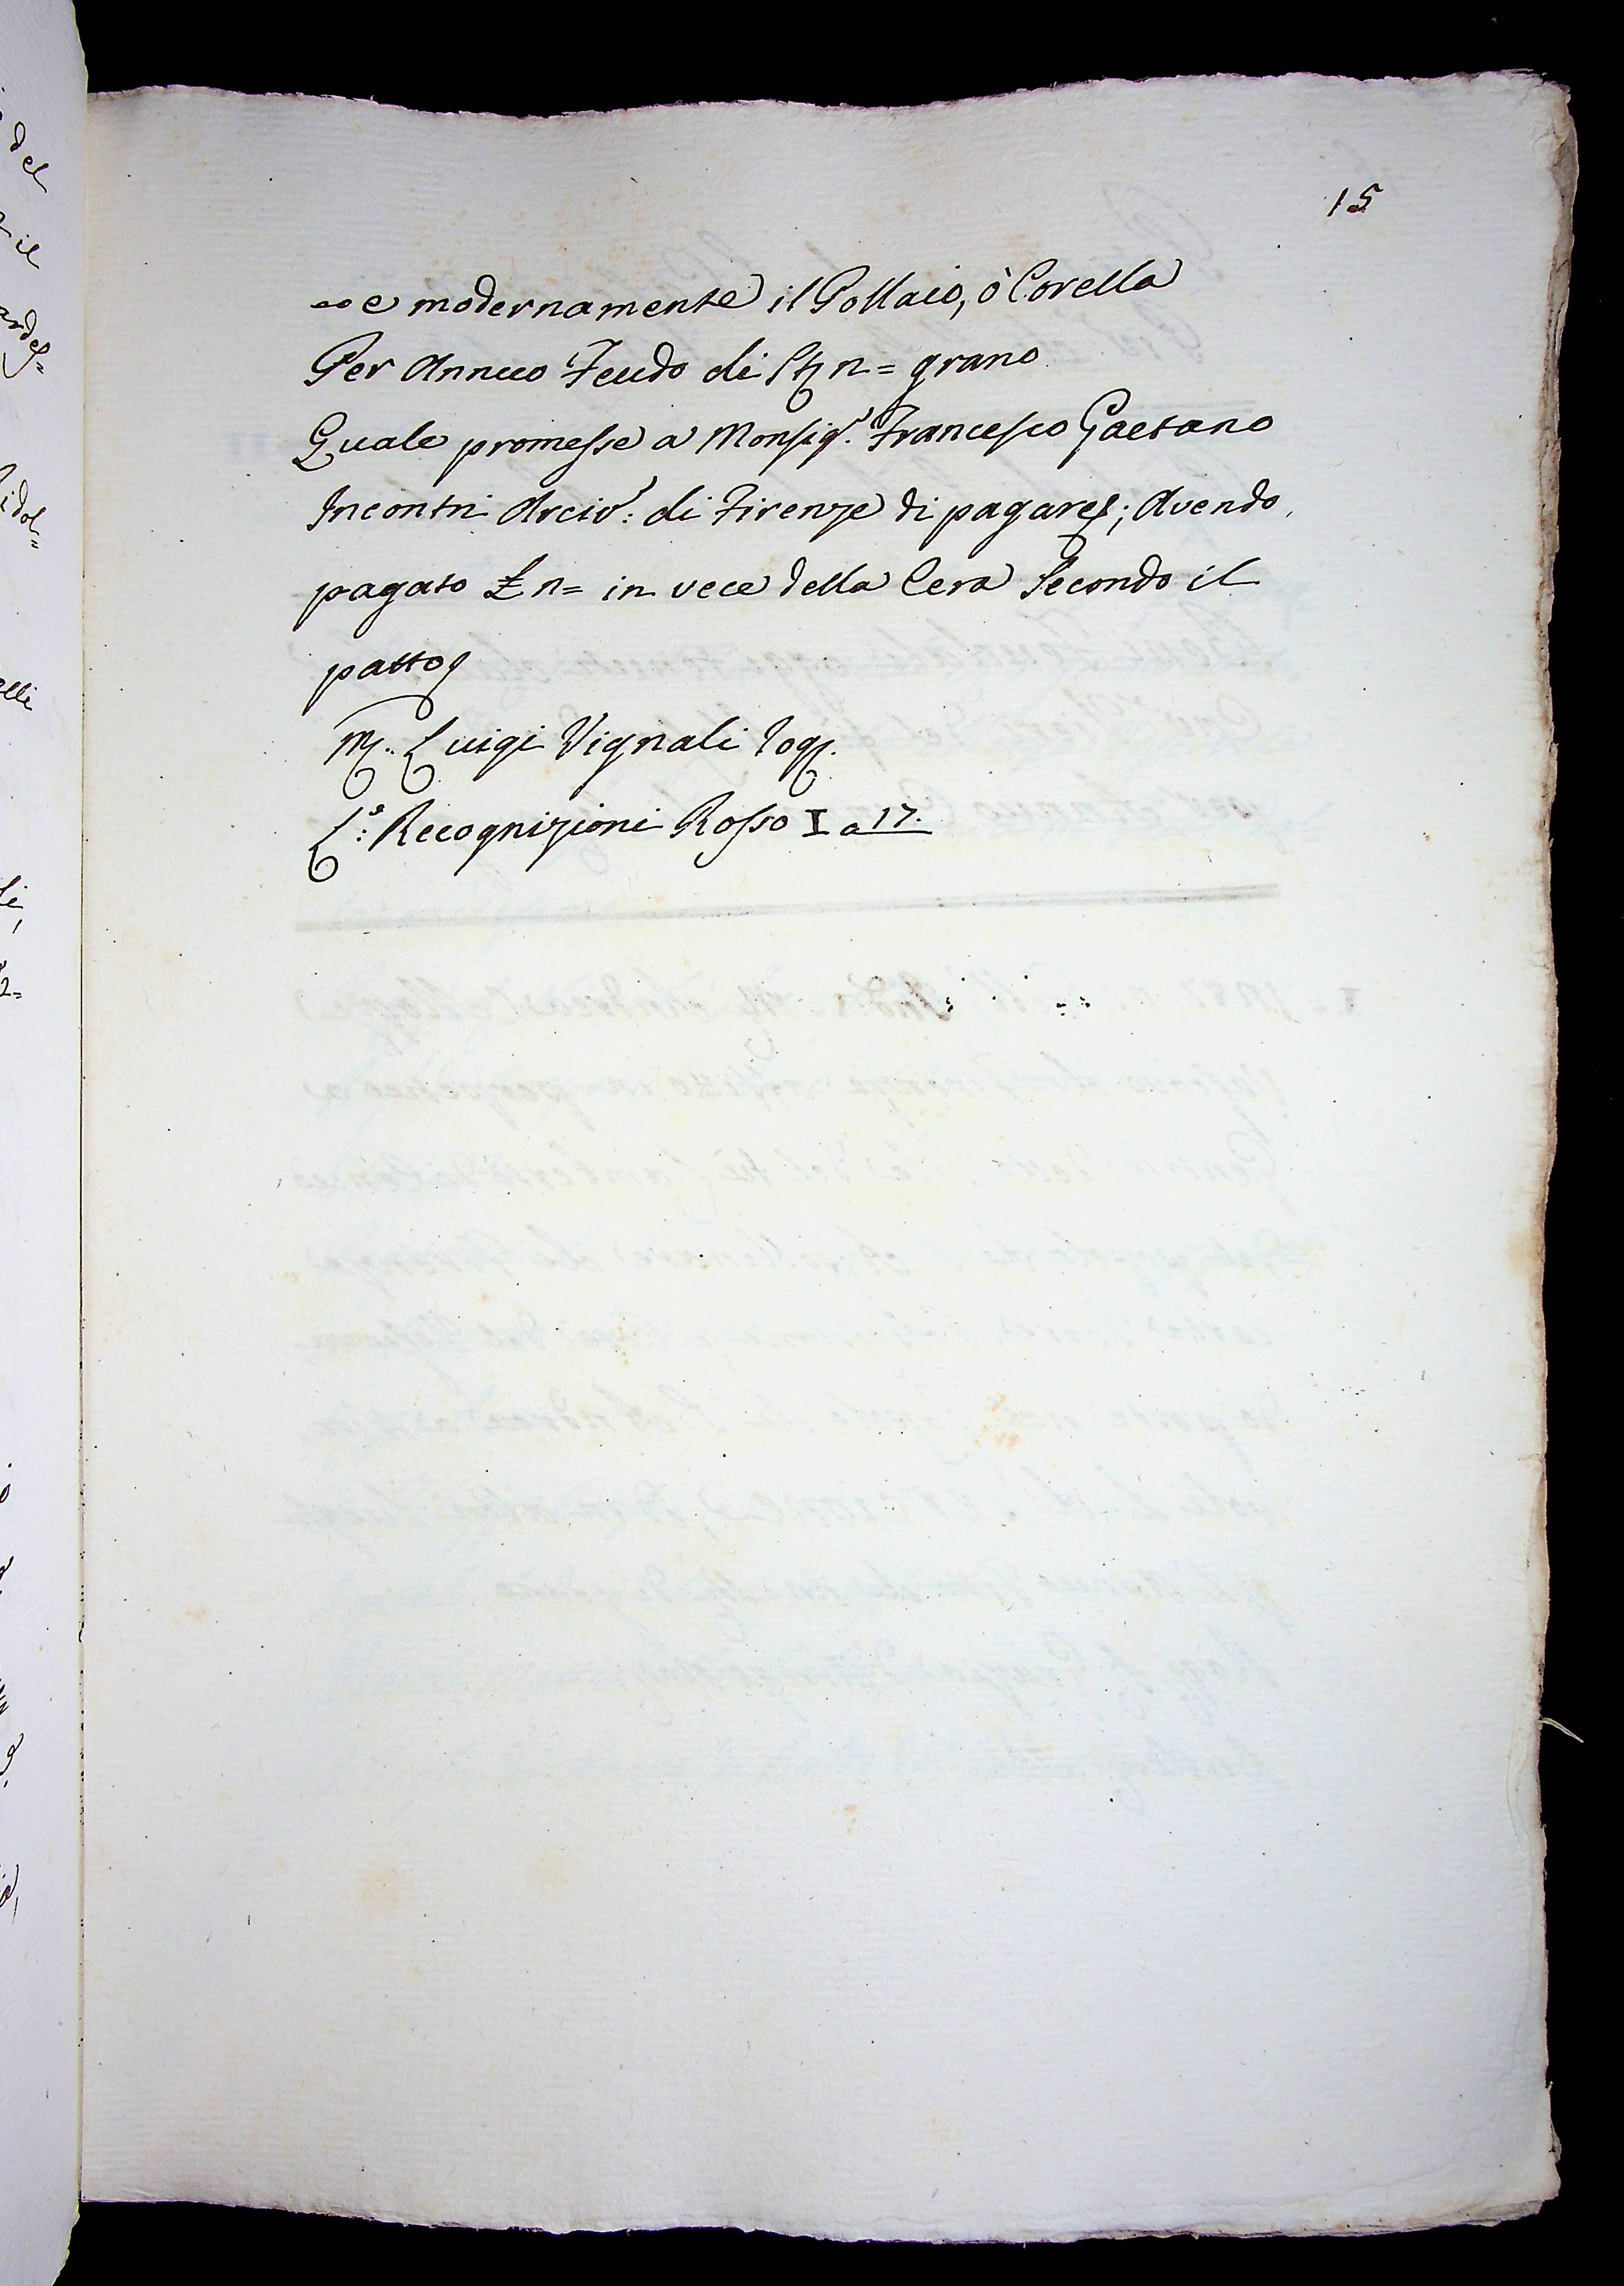 15
e modernamente il Pollaio, ò Corella
Per Annuo Feudo di St n= grano
Quale promesse a Monsig.r Francesco Gaetano
Incontri Arciv: di Firenze di pagare; Avendo
pagato £ n= in vece della Cera Secondo il
patto
M. Luigi Vignali Rog.
L.o: Recognizioni Rosso I a 17.